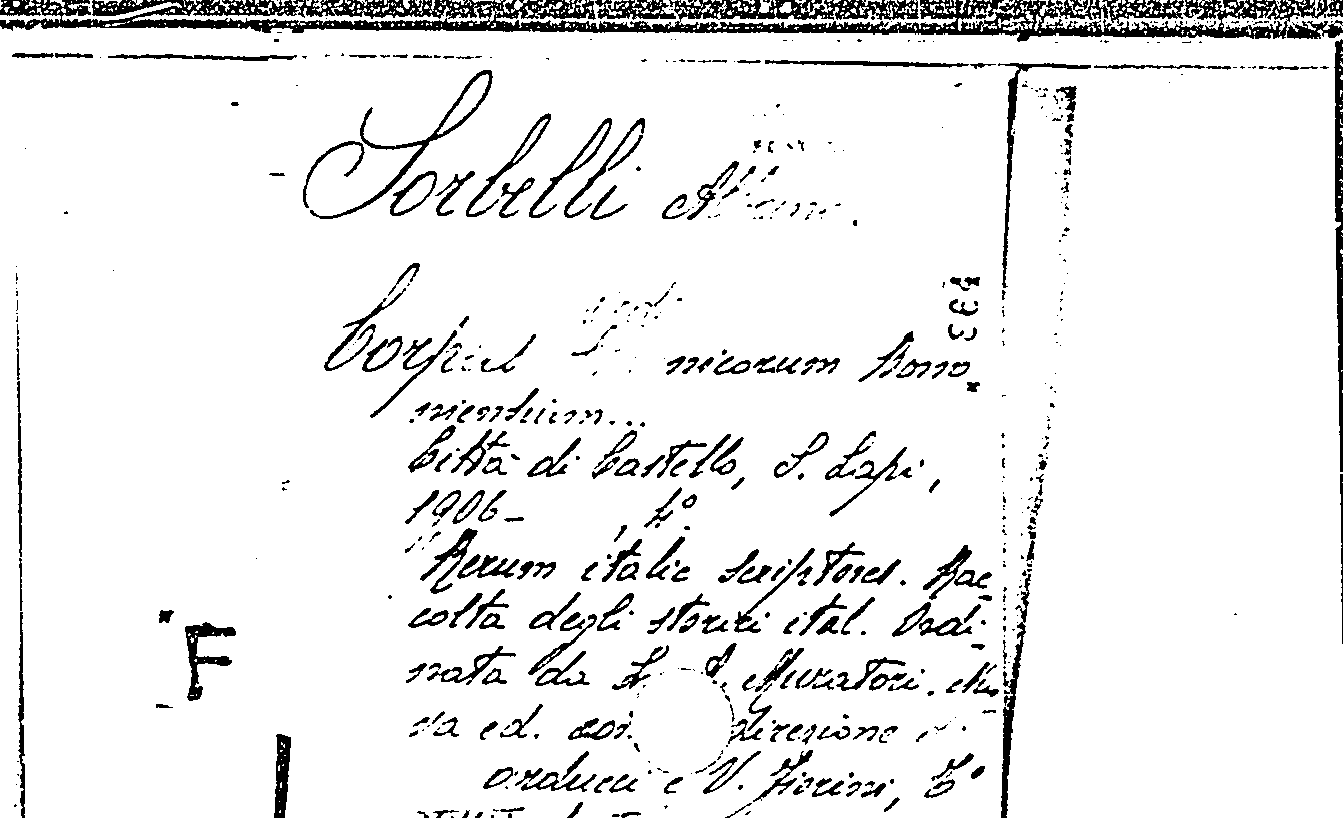 Sorbelli Albano.
Corpus nicorum Bono
niensium...
Città di Castello, S. Lapi,
1906- , 4°.
"Rerum italic scriptores. Rac
colta degli storici ital. Ordi-
nata da L. A. Muratori. Nuo
va ed. con direzione
arducci e V. Fiorini, T°
393
F